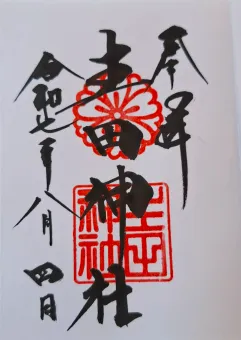 奉拝
生田神社
令和七年八月四日
生田神社